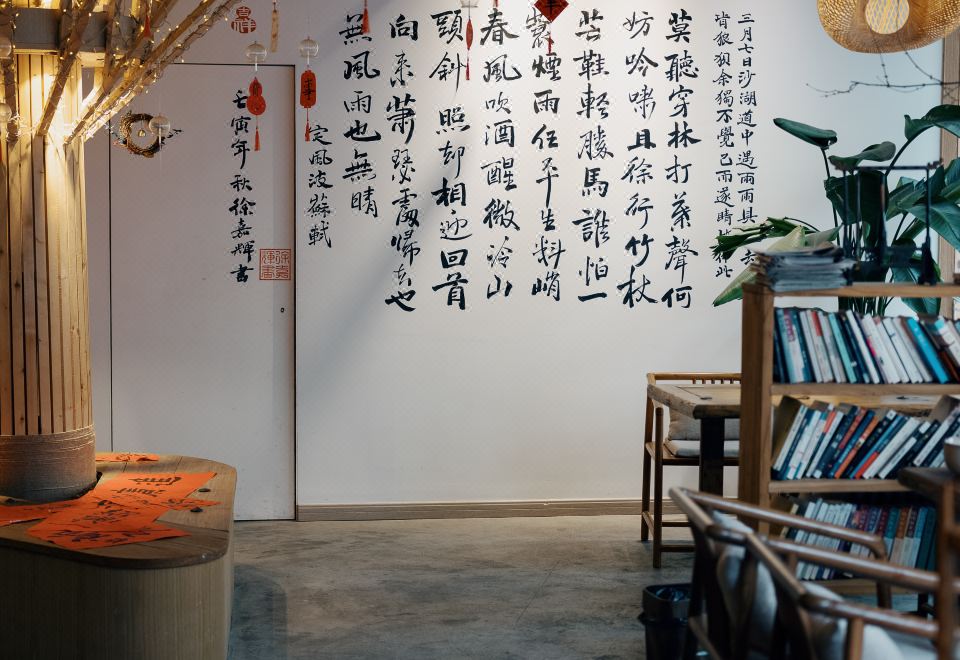 三月七日沙湖道中遇雨雨具去
皆狼狽余獨不覺已而遂晴此
莫聽穿林打葉聲何
妨吟嘯且徐行竹杖
芒鞵輕勝馬誰怕一
蓑煙雨任平生料峭
春風吹酒醒微冷山
頭斜照却相迎回首
向來蕭瑟處歸去也
無風雨也無晴
定風波蘇軾
壬寅年秋徐嘉輝書